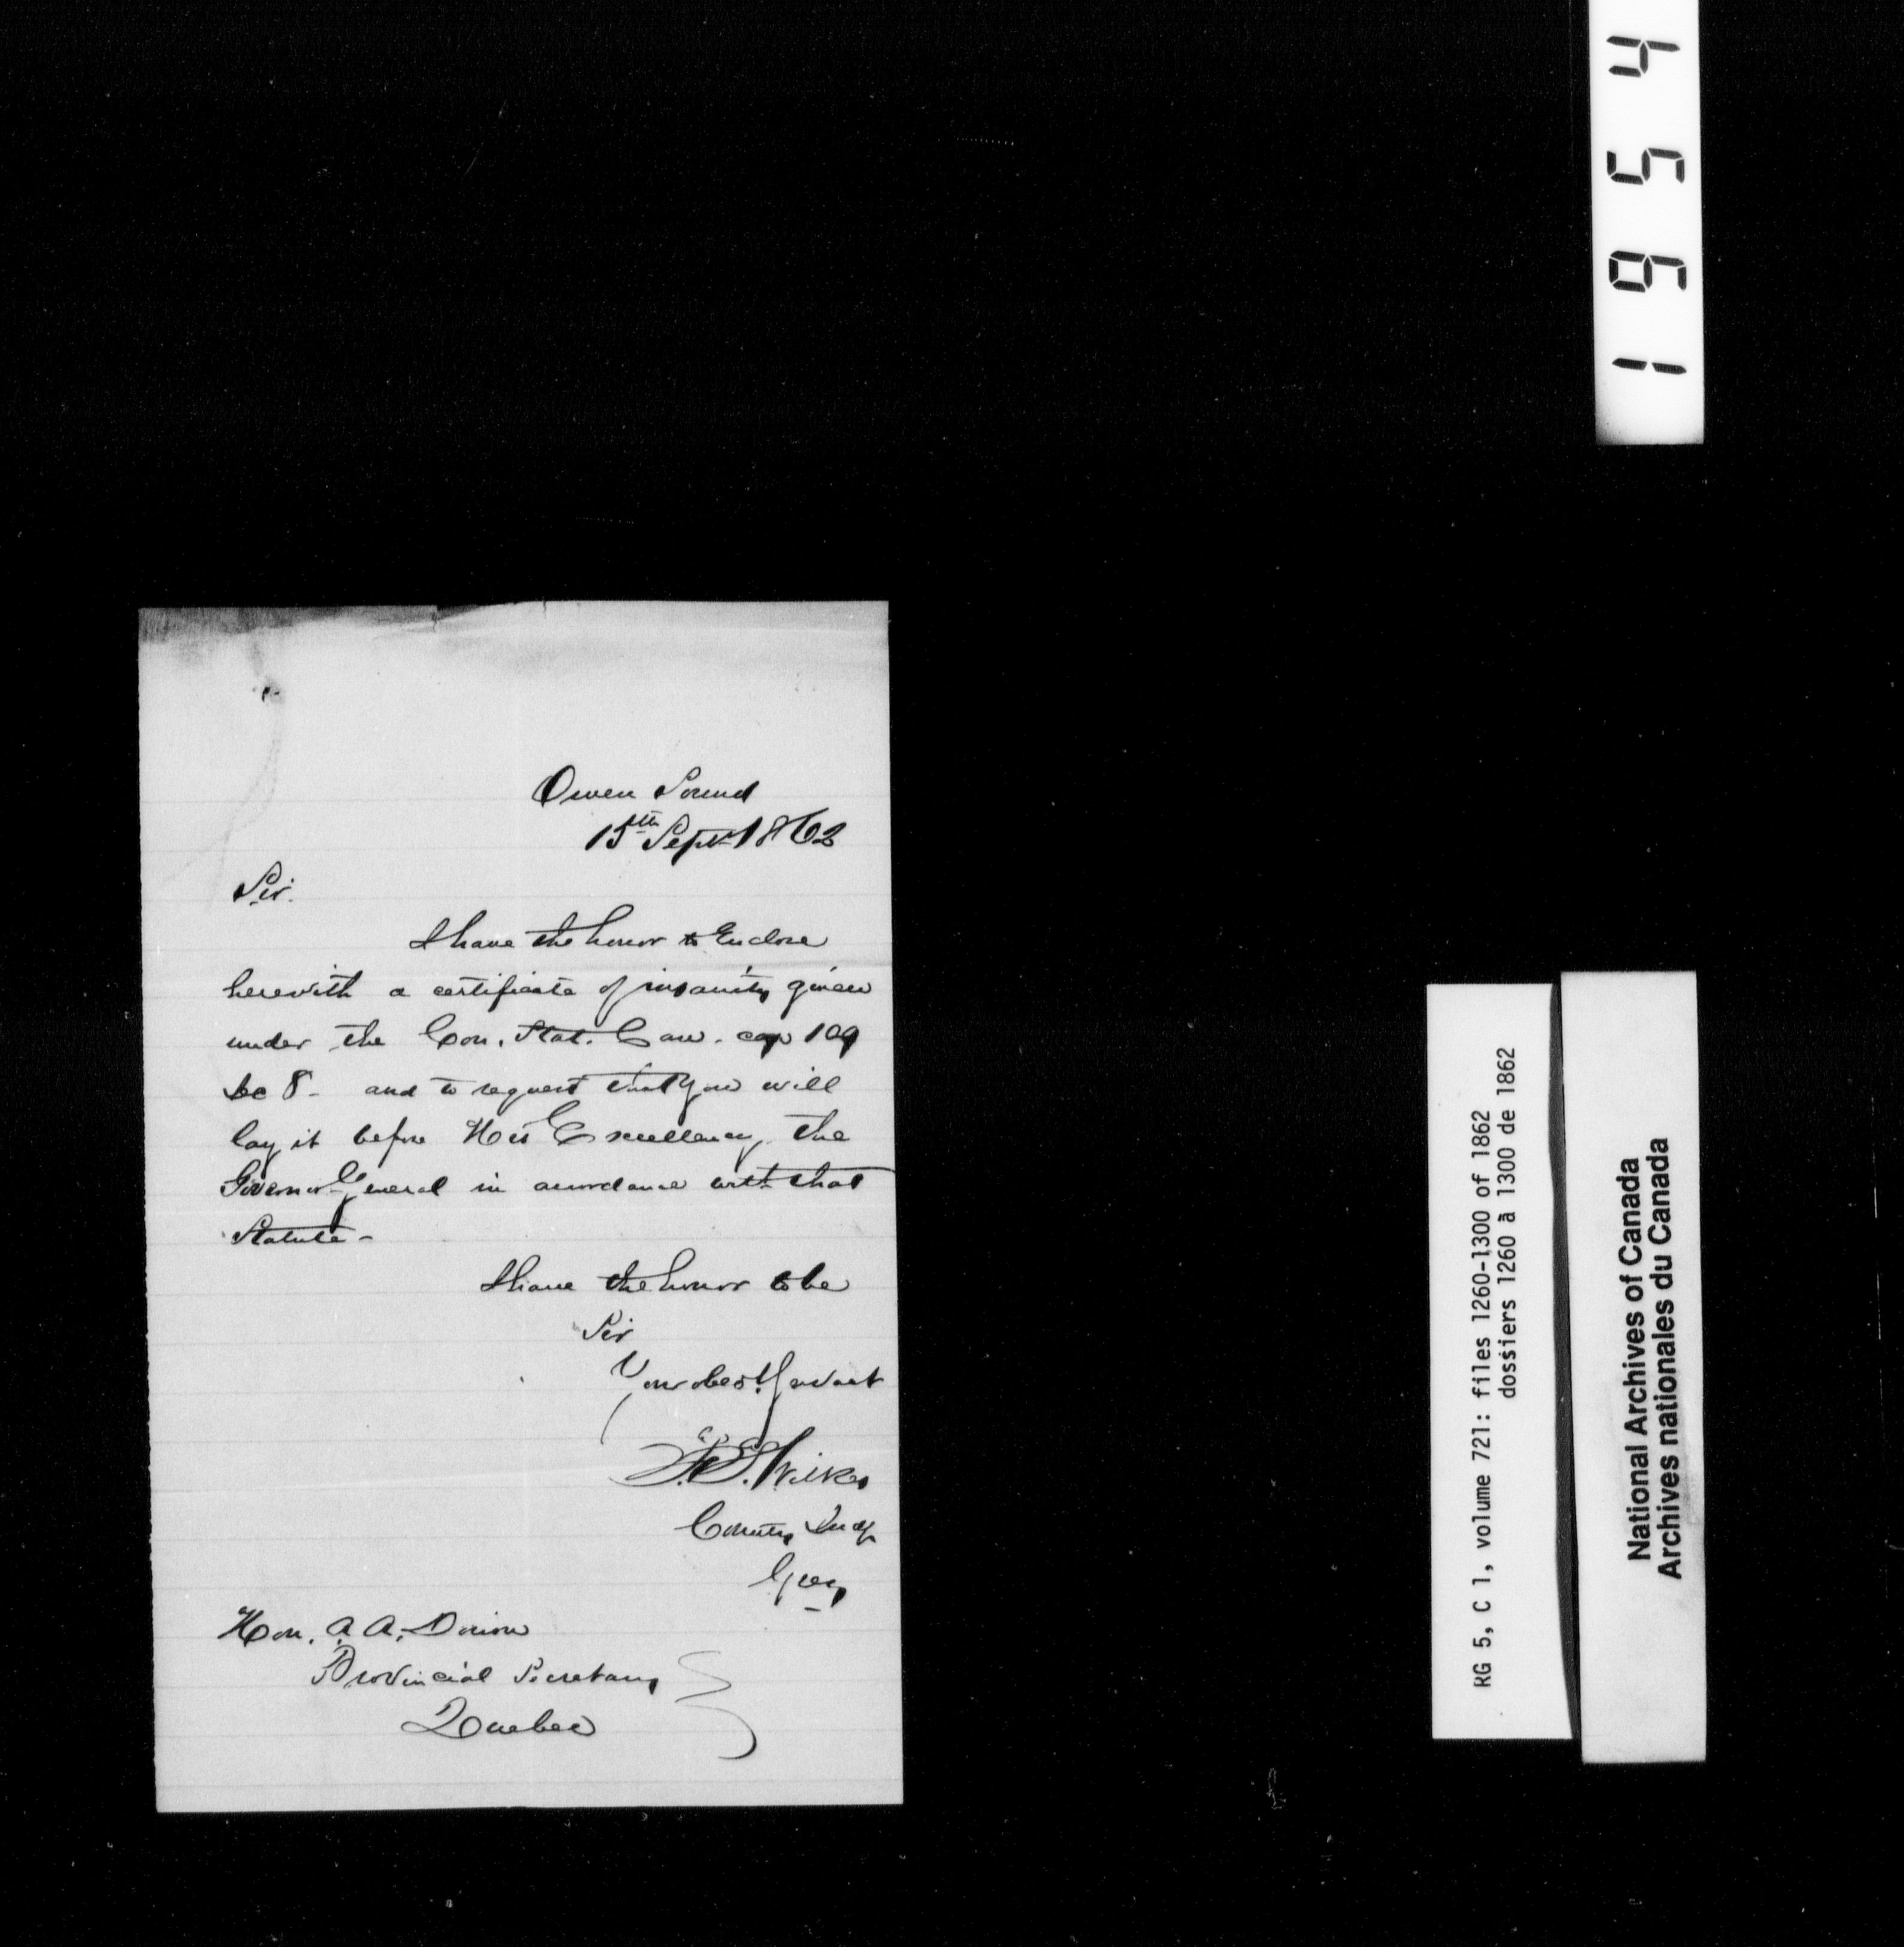 Owen Sound
15th Sept 1862
Sir.
I have the honor to Enclose
herewith a certificate of insanity given
under the Con. Stat. Can. cap 109
Sec 8 - and to request that you will
lay it before His Excellency the
Governor General in accordance with that
Statute -
I have the honor to be
Sir
Your obest Servant
Wilkes
County Judge
Grey
Hon. A. A. Dorion
Provincial Secretary
Quebec
1954
RG 5, C 1, volume 721: files 1260-1300 of 1862
dossiers 1260 à 1300 de 1862
National Archives of Canada
Archives nationales du Canada